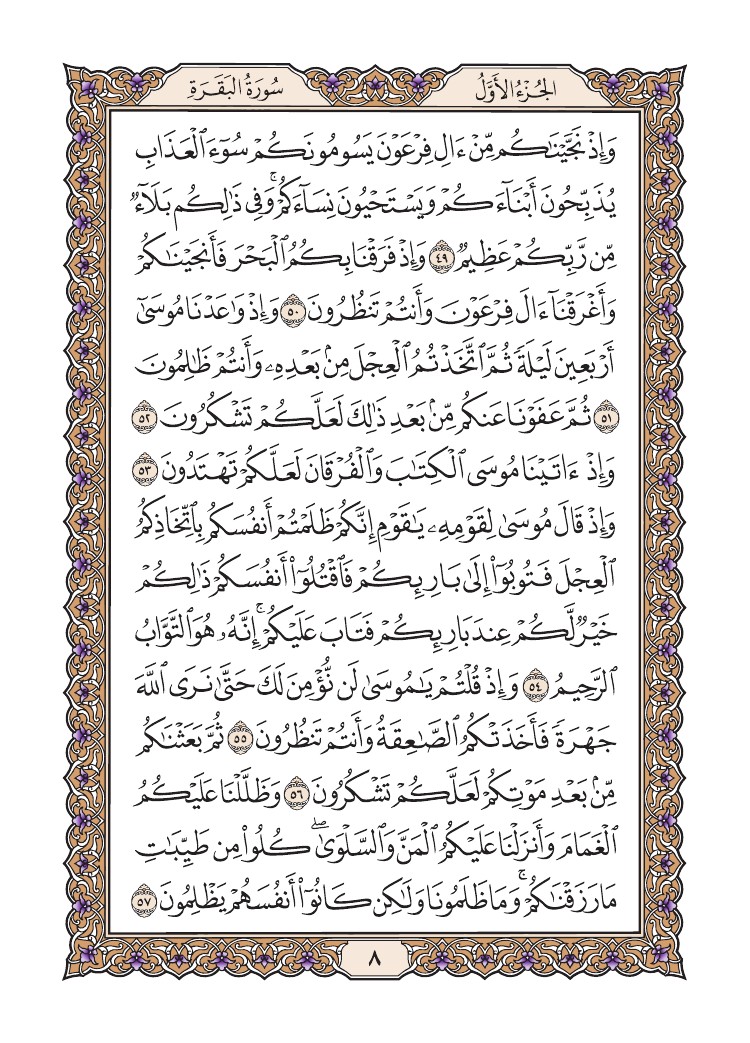 الجُزْءُ الأَوَّلُ
سُورَةُ البَقَرَةِ
وَإِذْ نَجَّيْنَٰكُم مِّنْ ءَالِ فِرْعَوْنَ يَسُومُونَكُمْ سُوٓءَ ٱلْعَذَابِ
يُذَبِّحُونَ أَبْنَآءَكُمْ وَيَسْتَحْيُونَ نِسَآءَكُمْ ۚ وَفِى ذَٰلِكُم بَلَآءٌ
مِّن رَّبِّكُمْ عَظِيمٌ ٤٩ وَإِذْ فَرَقْنَا بِكُمُ ٱلْبَحْرَ فَأَنجَيْنَٰكُمْ
وَأَغْرَقْنَآ ءَالَ فِرْعَوْنَ وَأَنتُمْ تَنظُرُونَ ٥٠ وَإِذْ وَٰعَدْنَا مُوسَىٰٓ
أَرْبَعِينَ لَيْلَةً ثُمَّ ٱتَّخَذْتُمُ ٱلْعِجْلَ مِنۢ بَعْدِهِۦ وَأَنتُمْ ظَٰلِمُونَ
٥١ ثُمَّ عَفَوْنَا عَنكُم مِّنۢ بَعْدِ ذَٰلِكَ لَعَلَّكُمْ تَشْكُرُونَ ٥٢
وَإِذْ ءَاتَيْنَا مُوسَى ٱلْكِتَٰبَ وَٱلْفُرْقَانَ لَعَلَّكُمْ تَهْتَدُونَ ٥٣
وَإِذْ قَالَ مُوسَىٰ لِقَوْمِهِۦ يَٰقَوْمِ إِنَّكُمْ ظَلَمْتُمْ أَنفُسَكُم بِٱتِّخَاذِكُمُ
ٱلْعِجْلَ فَتُوبُوٓا۟ إِلَىٰ بَارِئِكُمْ فَٱقْتُلُوٓا۟ أَنفُسَكُمْ ذَٰلِكُمْ
خَيْرٌ لَّكُمْ عِندَ بَارِئِكُمْ فَتَابَ عَلَيْكُمْ ۚ إِنَّهُۥ هُوَ ٱلتَّوَّابُ
ٱلرَّحِيمُ ٥٤ وَإِذْ قُلْتُمْ يَٰمُوسَىٰ لَن نُّؤْمِنَ لَكَ حَتَّىٰ نَرَى ٱللَّهَ
جَهْرَةً فَأَخَذَتْكُمُ ٱلصَّٰعِقَةُ وَأَنتُمْ تَنظُرُونَ ٥٥ ثُمَّ بَعَثْنَٰكُم
مِّنۢ بَعْدِ مَوْتِكُمْ لَعَلَّكُمْ تَشْكُرُونَ ٥٦ وَظَلَّلْنَا عَلَيْكُمُ
ٱلْغَمَامَ وَأَنزَلْنَا عَلَيْكُمُ ٱلْمَنَّ وَٱلسَّلْوَىٰ ۖ كُلُوا۟ مِن طَيِّبَٰتِ
مَا رَزَقْنَٰكُمْ ۚ وَمَا ظَلَمُونَا وَلَٰكِن كَانُوٓا۟ أَنفُسَهُمْ يَظْلِمُونَ ٥٧
٨